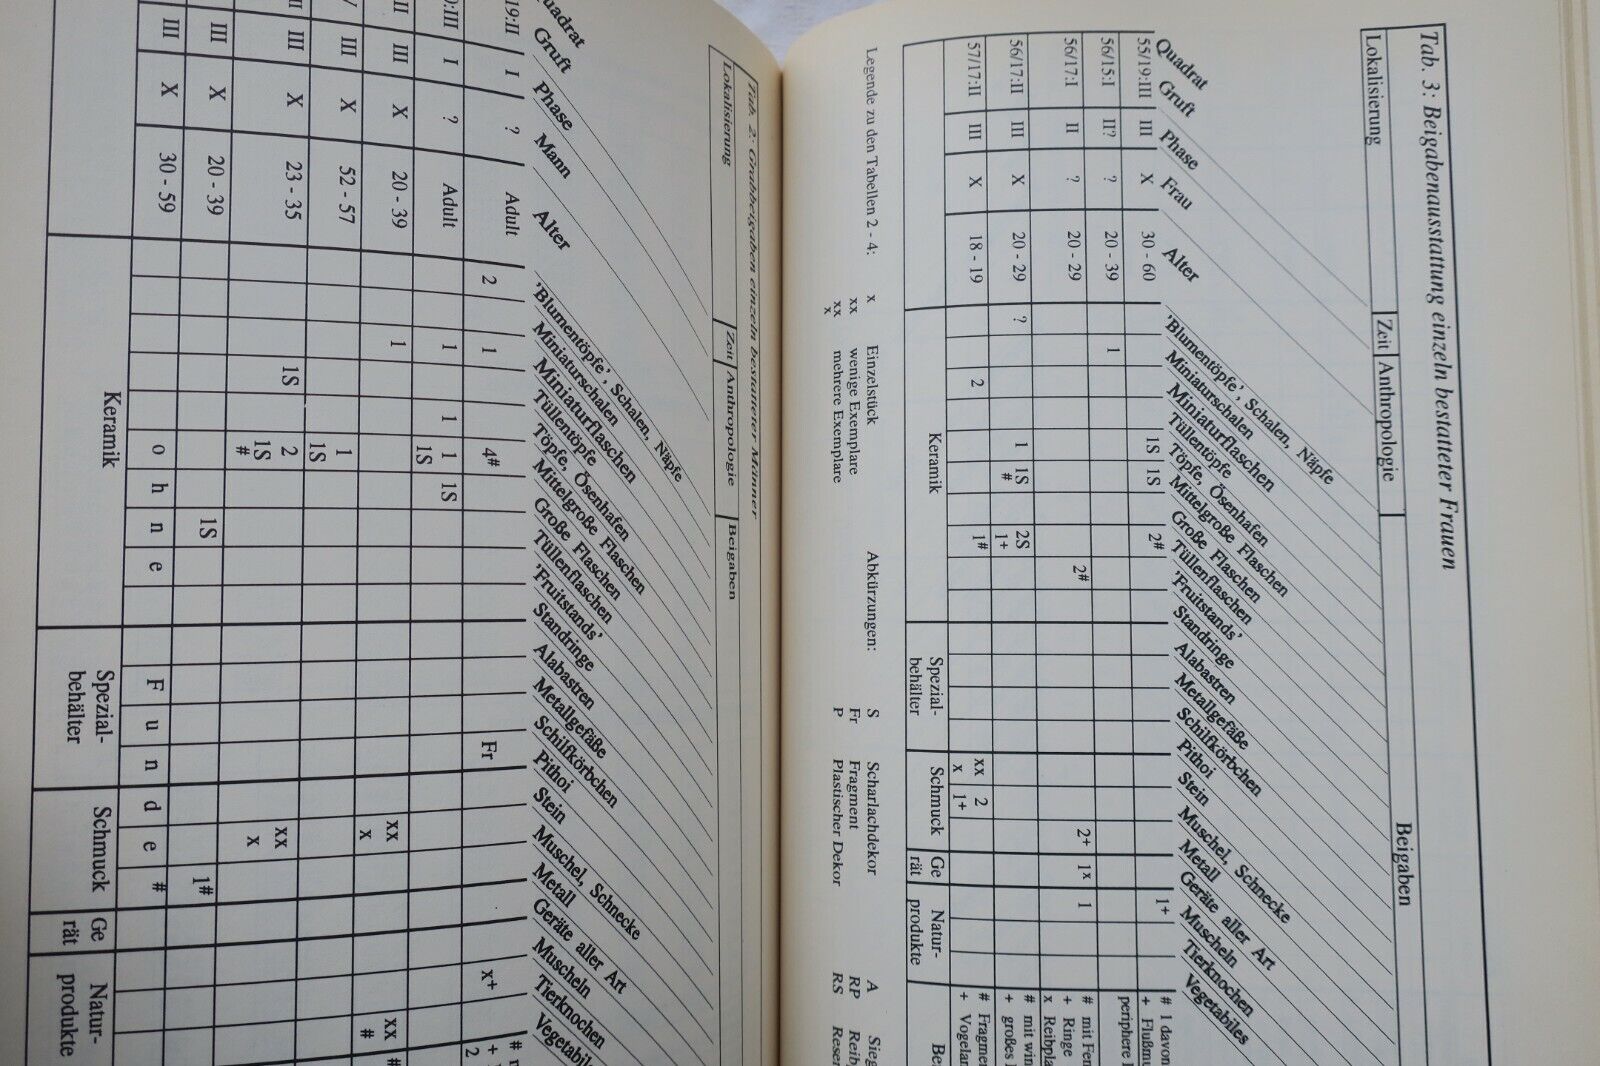 Tab. 2: Grabbeigaben einzeln bestatteter Männer
Lokalisierung | Zeit | Anthropologie | Beigaben
Quadrat
Gruft
Phase
Mann
Alter
'Blumentöpfe', Schalen, Näpfe
Miniaturschalen
Miniaturflaschen
Tüllentöpfe
Töpfe, Ösenhafen
Mittelgroße Flaschen
Große Flaschen
Tüllenflaschen
'Fruitstands'
Standringe
Alabastren
Metallgefäße
Schilfkörbchen
Pithoi
Stein
Muschel, Schnecke
Metall
Geräte aller Art
Muscheln
Tierknochen
19:II I ? Adult 2 1 4# Fr x+
:III I ? Adult 1 1 1 1S 1S
II III X 20 - 39 1 xx x xx #
III X 52 - 57 1 1S
II III X 23 - 35 1S 2 1S # xx x
III X 20 - 39 1S 1#
III X 30 - 59 ohne Funde #
Keramik
Spezial-
behälter
Schmuck
Ge
rät
Natur-
produkte
Tab. 3: Beigabenausstattung einzeln bestatteter Frauen
Lokalisierung | Zeit | Anthropologie | Beigaben
Quadrat
Gruft
Phase
Frau
Alter
'Blumentöpfe', Schalen, Näpfe
Miniaturschalen
Miniaturflaschen
Tüllentöpfe
Töpfe, Ösenhafen
Mittelgroße Flaschen
Große Flaschen
Tüllenflaschen
'Fruitstands'
Standringe
Alabastren
Metallgefäße
Schilfkörbchen
Pithoi
Stein
Muschel, Schnecke
Metall
Geräte aller Art
Muscheln
Tierknochen
Vegetabiles
55/19:III III X 30 - 60 1S 1S 2# 1+ # 1 davon
periphere
56/15:I II? ? 20 - 39 1
56/17:I II ? 20 - 29 2# 2+ 1x 1 # mit
+ Ringe
x
56/17:II III X 20 - 29 ? 1 1S # 2S 1+ # mit
+ großes
57/17:II III X 18 - 19 2 1# xx x 2 1+
+
Keramik
Spezial-
behälter
Schmuck
Ge
rät
Natur-
produkte
Legende zu den Tabellen 2 - 4:
x Einzelstück
xx wenige Exemplare
xx x mehrere Exemplare
Abkürzungen:
S Scharlachdekor
Fr Fragment
P Plastischer Dekor
A
RP
RS